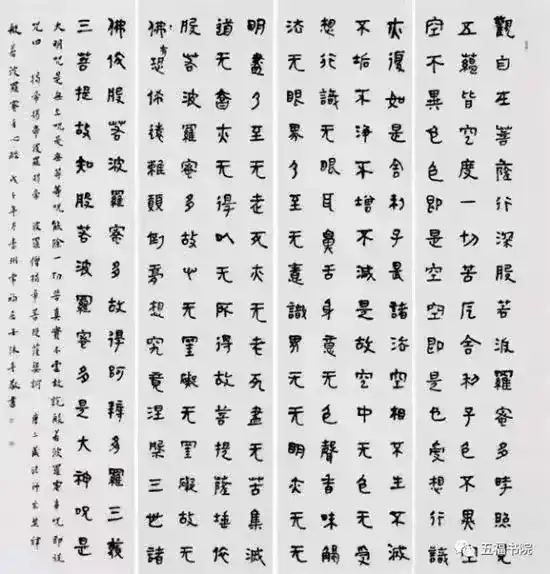 觀自在菩薩行深般若波羅蜜多時照見
五蘊皆空度一切苦厄舍利子色不異空
空不異色色即是空空即是色受想行識
亦復如是舍利子是諸法空相不生不滅
不垢不淨不增不減是故空中无色无受
想行識无眼耳鼻舌身意无色聲香味觸
法无眼界乃至无意識界无无明亦无无
明盡乃至无老死亦无老死盡无苦集滅
道无智亦无得以无所得故菩提薩埵依
般若波羅蜜多故心无罣礙无罣礙故无
佛有恐怖遠離顛倒夢想究竟涅槃三世諸
佛依般若波羅蜜多故得阿耨多羅三藐
三菩提故知般若波羅蜜多是大神咒是
大明咒是無上咒是無等等咒能除一切苦真實不虛故說般若波羅蜜多咒即說
咒曰 揭帝揭帝波羅揭帝 波羅僧揭帝菩提薩婆訶 唐三藏法師玄奘譯
般若波羅蜜多心經 戊戌年 敬書
五福书院